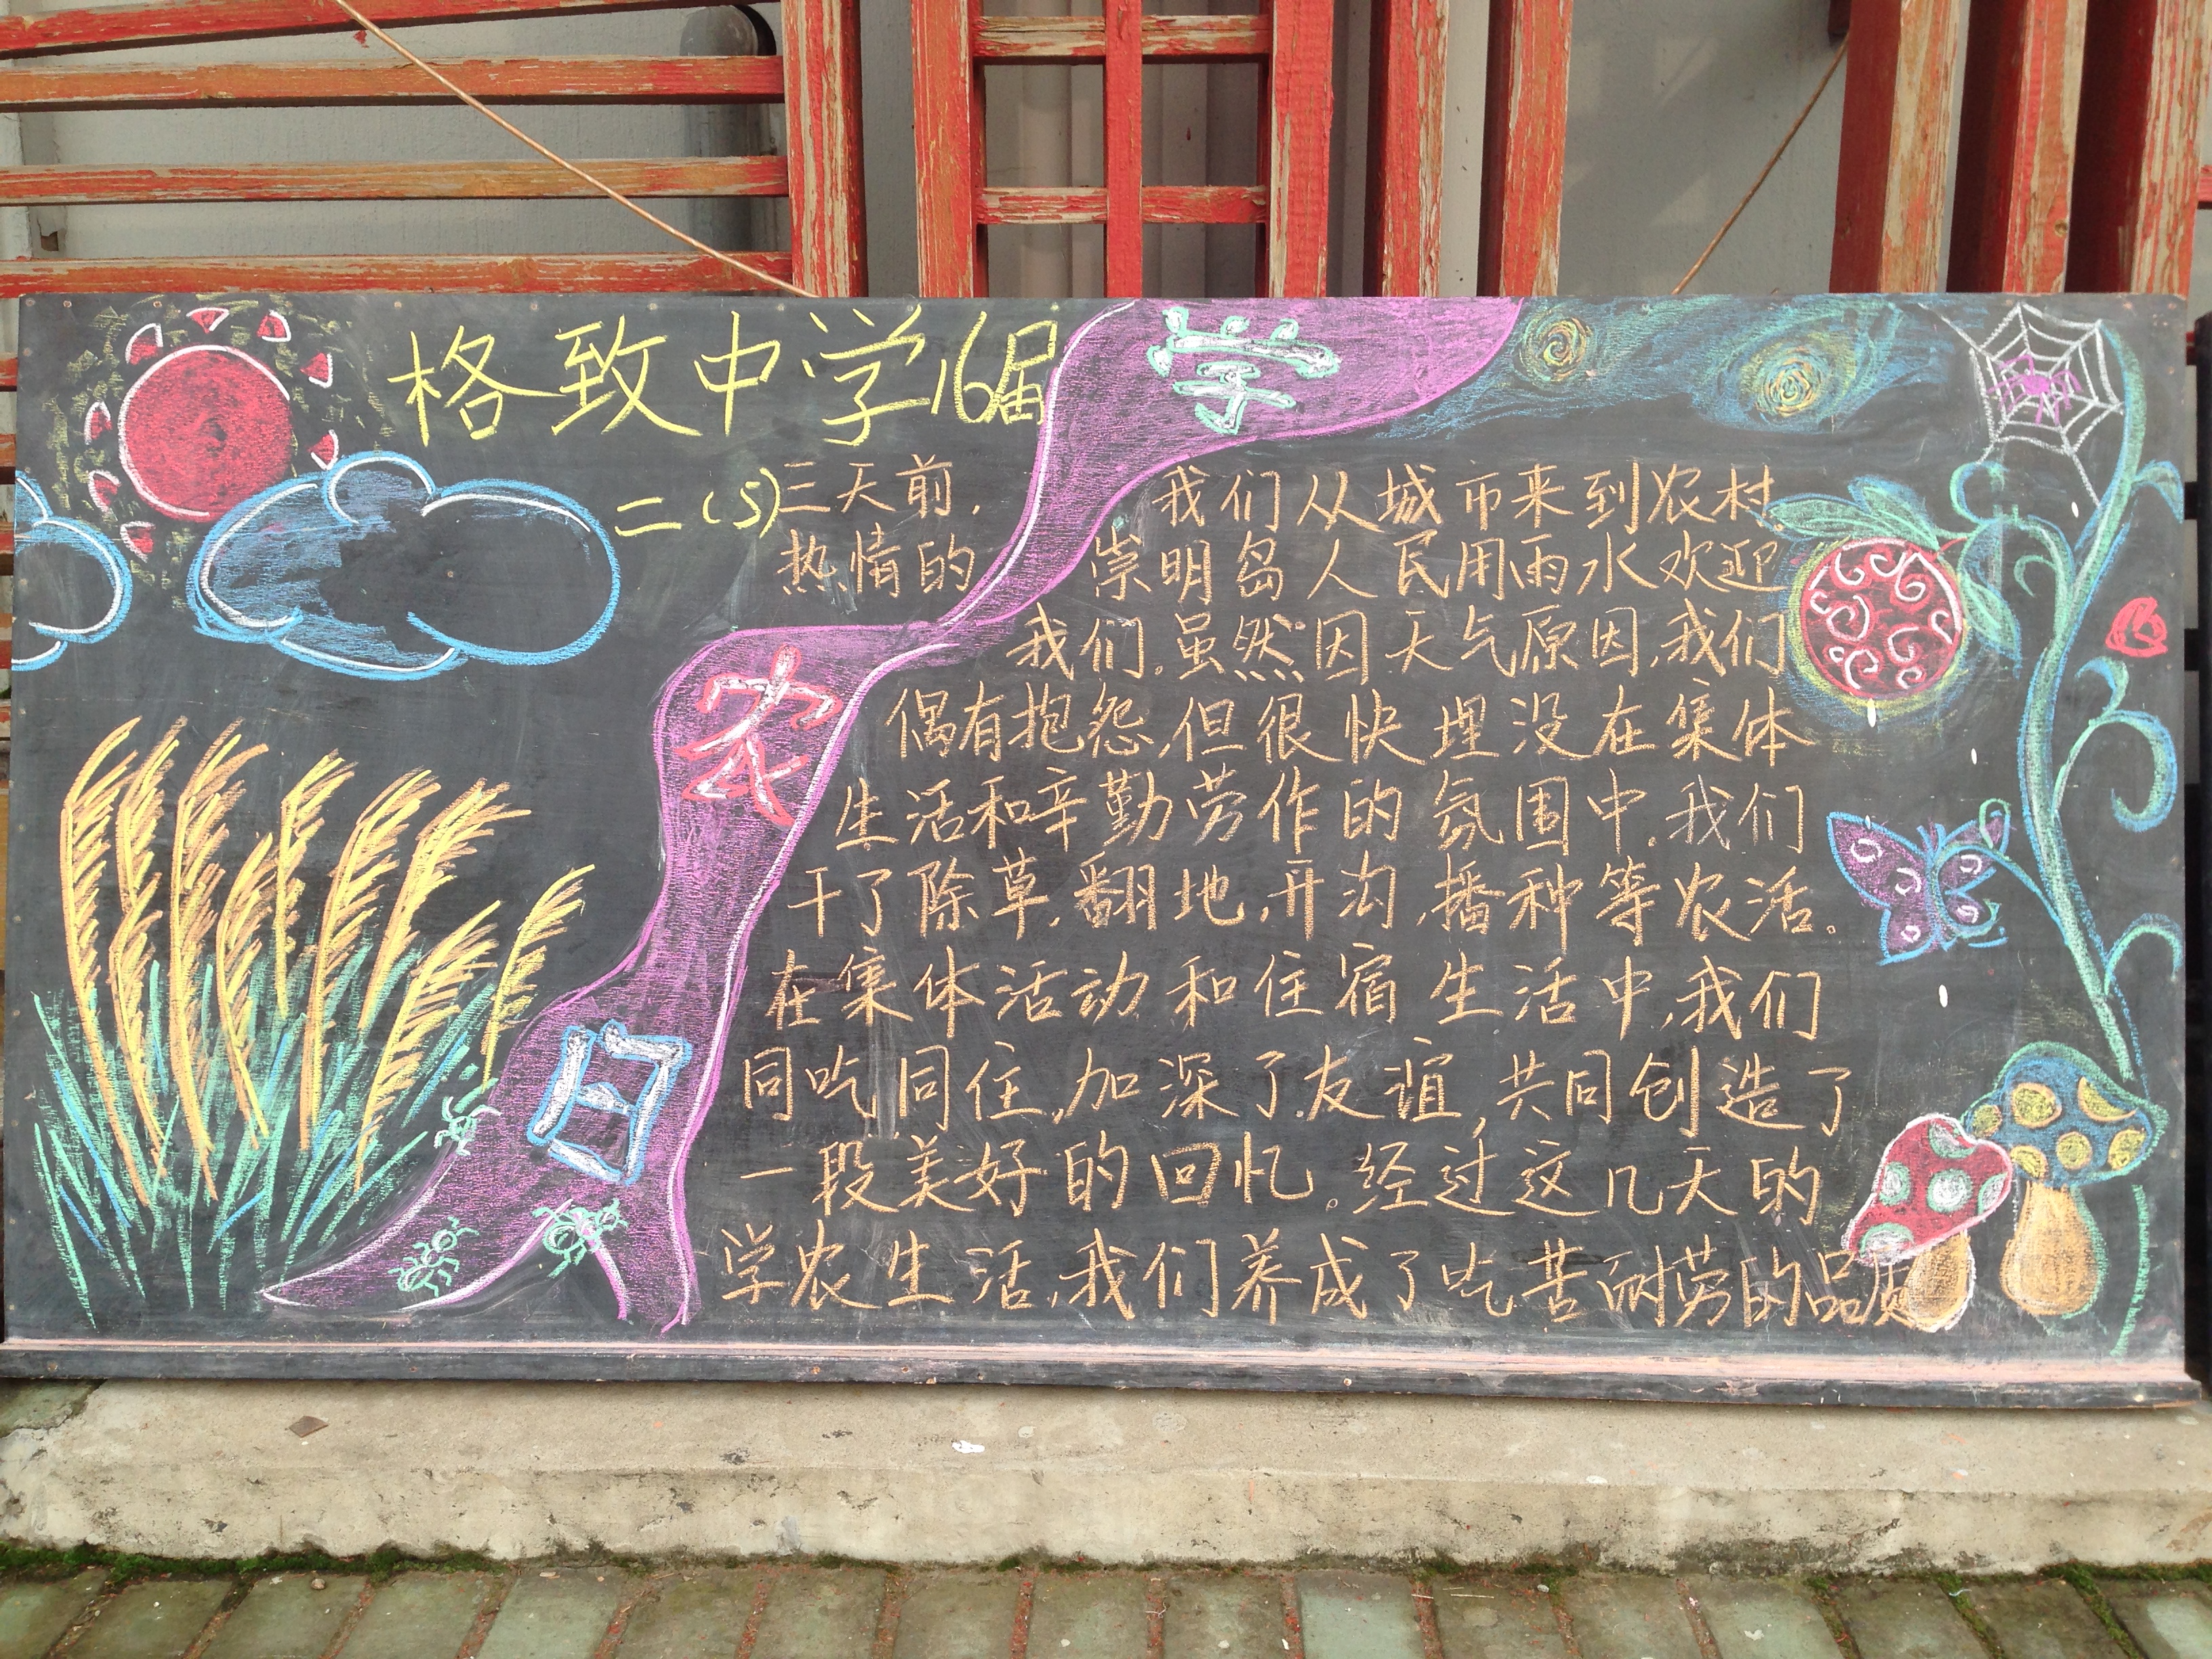 格致中学16届
二(5)
学
农
日
三天前,我们从城市来到农村,
热情的崇明岛人民用雨水欢迎
我们。虽然因天气原因,我们
偶有抱怨,但很快埋没在集体
生活和辛勤劳作的氛围中,我们
干了除草,翻地,开沟,播种等农活。
在集体活动和住宿生活中,我们
同吃同住,加深了友谊,共同创造了
一段美好的回忆。经过这几天的
学农生活,我们养成了吃苦耐劳的品质